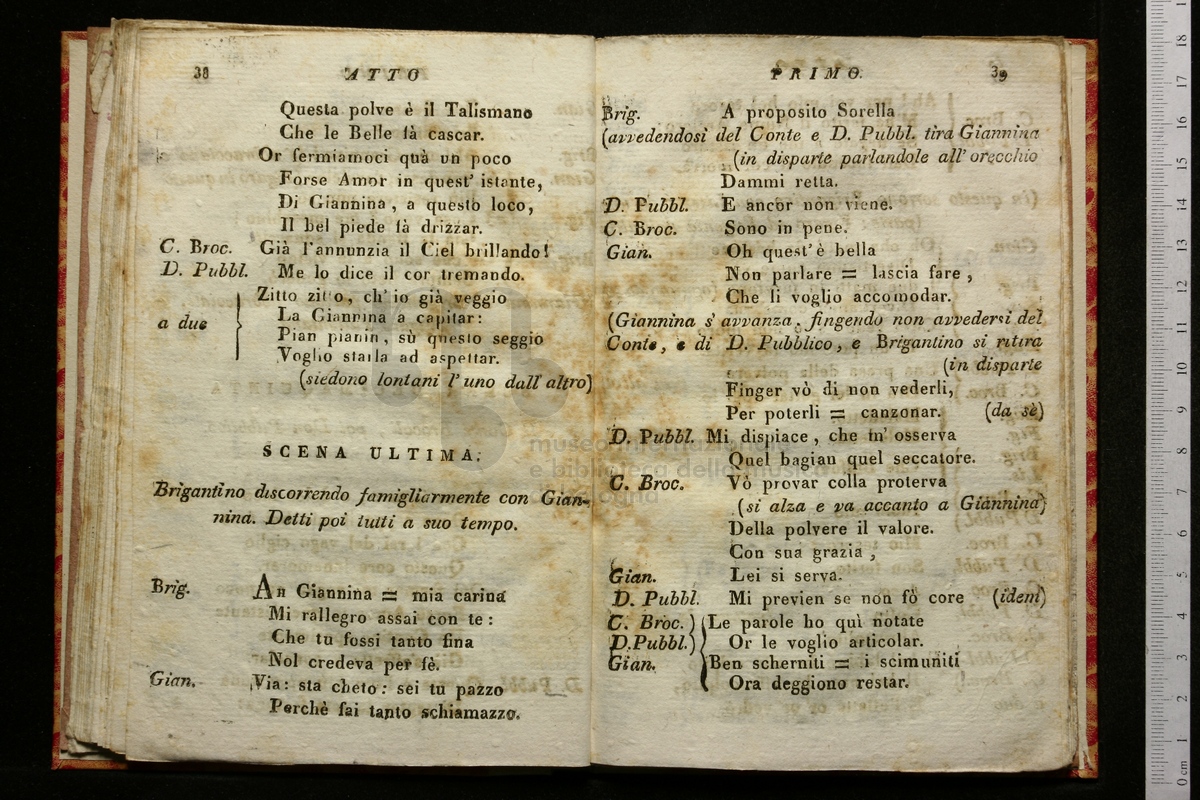 38 ATTO
Questa polve è il Talismano
Che le Belle fà cascar.
Or fermiamoci quà un poco
Forse Amor in quest' istante,
Di Giannina, a questo loco,
Il bel piede fà drizzar.
C. Broc. Già l'annunzia il Ciel brillando!
D. Pubbl. Me lo dice il cor tremando.
Zitto zitto, ch' io già veggio
La Giannina a capitar:
a due
Pian pianin, sù questo seggio
Voglio starla ad aspettar.
(siedono lontani l' uno dall' altro)
SCENA ULTIMA.
Brigantino discorrendo famigliarmente con Gian-
nina. Detti poi tutti a suo tempo.
Brig. Ah Giannina = mia carina
Mi rallegro assai con te:
Che tu fossi tanto fina
Nol credeva per fè.
Gian. Via: sta cheto: sei tu pazzo
Perchè fai tanto schiamazzo.
PRIMO. 39
Brig. A proposito Sorella
(avvedendosi del Conte e D. Pubbl. tira Giannina
(in disparte parlandole all' orecchio
Dammi retta.
D. Pubbl. E ancor non viene.
C. Broc. Sono in pene.
Gian. Oh quest' è bella
Non parlare = lascia fare,
Che li voglio accomodar.
(Giannina s' avvanza, fingendo non avvedersi del
Conte, e di D. Pubblico, e Brigantino si ritira
(in disparte
Finger vò di non vederli,
Per poterli = canzonar. (da sè)
D. Pubbl. Mi dispiace, che m' osserva
Quel bagian quel seccatore.
C. Broc. Vò provar colla proterva
(si alza e va accanto a Giannina)
Della polvere il valore.
Con sua grazia,
Gian. Lei si serva.
D. Pubbl. Mi previen se non fò core (idem)
C. Broc.) (Le parole ho quì notate
D.Pubbl.) Or le voglio articolar.
Gian. (Ben scherniti = i scimuniti
Ora deggiono restar.
museo internazionale
e biblioteca della musica
0 cm 1 2 3 4 5 6 7 8 9 10 11 12 13 14 15 16 17 18